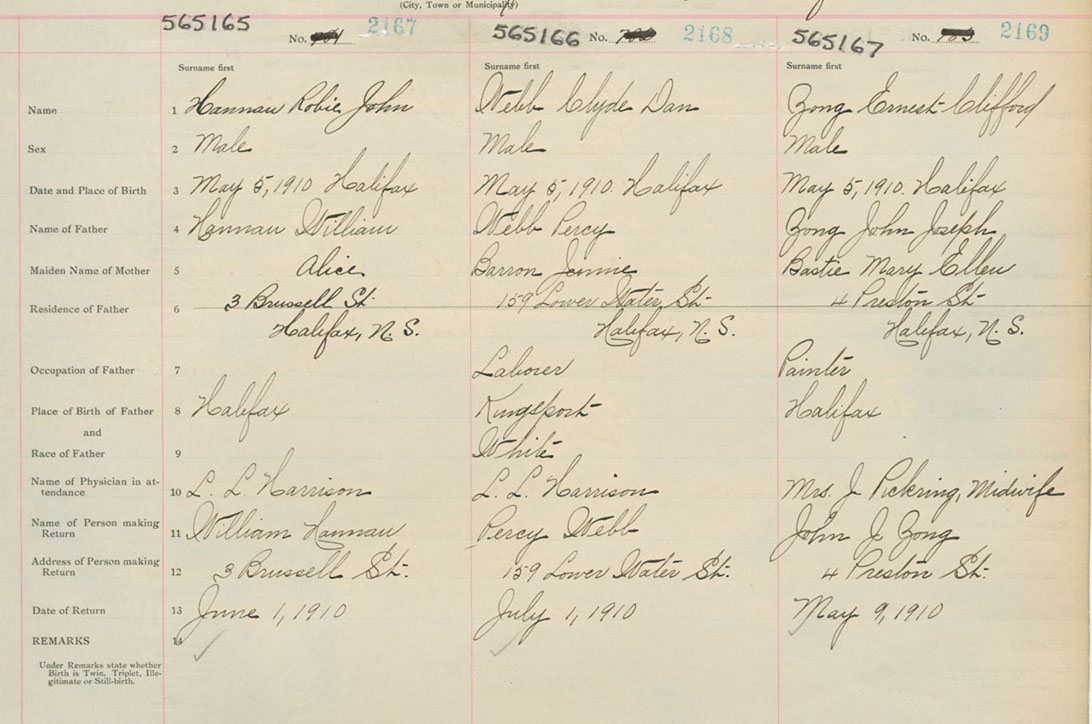 (City, Town or Municipality)
565165 No. 2167
565166 No. 2168
565167 No. 2169
Surname first Surname first Surname first
Name 1 Hannau Robie John Webb Clyde Dan Zong Ernest Clifford
Sex 2 Male Male Male
Date and Place of Birth 3 May 5, 1910 Halifax May 5, 1910. Halifax May 5, 1910. Halifax
Name of Father 4 Hannau William Webb Percy Zong John Joseph
Maiden Name of Mother 5 Alice Barron Jennie Bastie Mary Ellen
Residence of Father 6 3 Brussell St. 159 Lower Water St. 4 Preston St.
Halifax, N. S. Halifax, N. S. Halifax, N. S.
Occupation of Father 7 Laborer Painter
Place of Birth of Father 8 Halifax Kingsport Halifax
and
Race of Father 9 White
Name of Physician in at-
tendance 10 L. L. Harrison L. L. Harrison Mrs. J Pickring, Midwife
Name of Person making
Return 11 William Hannau Percy Webb John J Zong
Address of Person making
Return 12 3 Brussell St. 159 Lower Water St. 4 Preston St.
Date of Return 13 June 1, 1910 July 1, 1910 May 9, 1910
REMARKS 14
Under Remarks state whether
Birth is Twin, Triplet, Ille-
gitimate or Still-birth.